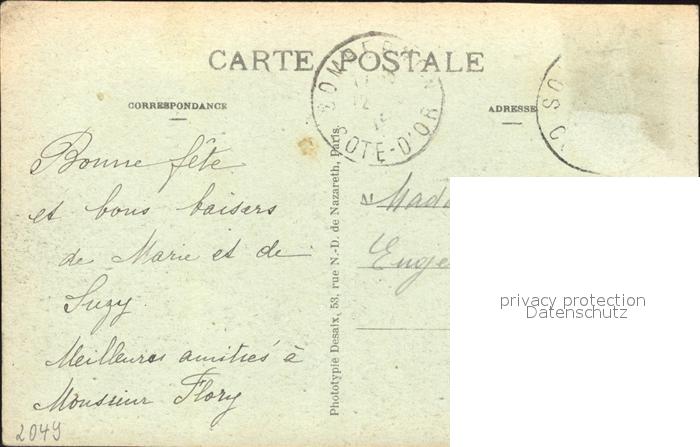 CARTE POSTALE
CORRESPONDANCE
ADRESSE
CÔTE-D'OR
Bonne fête
et bons baisers
de Marie et de
Suzy.
Meilleures amitiés à
Monsieur Flory
2049
Phototypie Desaix, 53, rue N.-D. de Nazareth, Paris.
privacy protection
Datenschutz